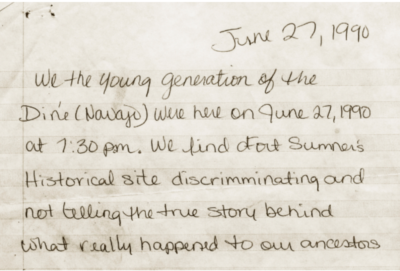 June 27, 1990
We the young generation of the
Diné (Navajo) were here on June 27, 1990
at 7:30 pm. We find Fort Sumner's
Historical site discrimminating and
not telling the true story behind
what really happened to our ancestors